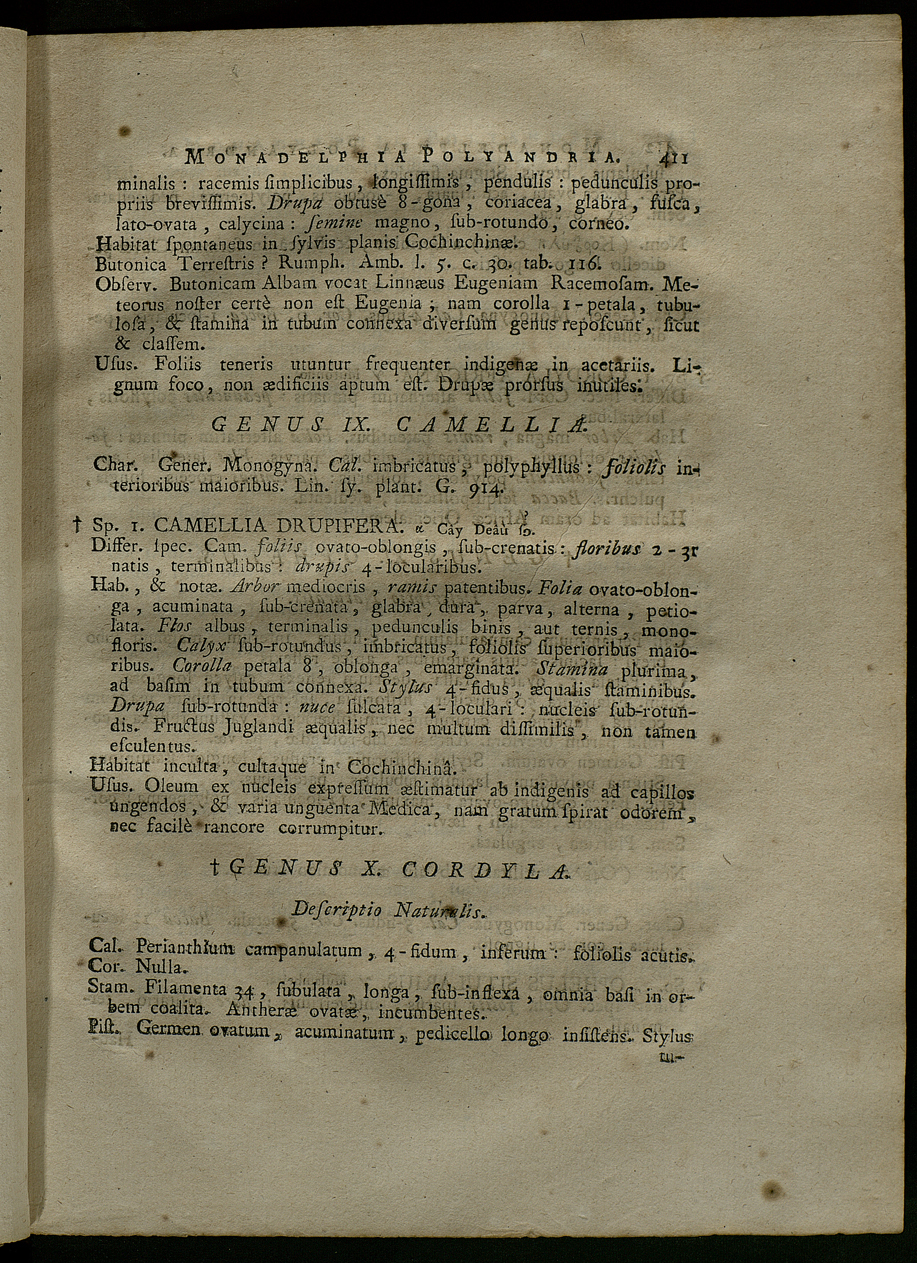 MONADELPHIA POLYANDRIA. 411
minalis : racemis ſimplicibus, longiſſimis, pendulis : pedunculis pro-
priis breviſſimis. Drupa obtusè 8-gona, coriacea, glabra, fuſca,
lato-ovata, calycina : ſemine magno, ſub-rotundo, corneo.
Habitat ſpontaneus in ſylvis planis Cochinchinæ.
Butonica Terreſtris ? Rumph. Amb. l. 5. c. 30. tab. 116.
Obſerv. Butonicam Albam vocat Linnæus Eugeniam Racemoſam. Me-
teorus noſter certè non eſt Eugenia ; nam corolla 1-petala, tubu-
loſa, & ſtamina in tubum connexa diverſum genus repoſcunt, ſicut
& claſſem.
Uſus. Foliis teneris utuntur frequenter indigenæ in acetariis. Li-
gnum foco, non ædificiis aptum eſt. Drupæ prórſus inutiles.
GENUS IX. CAMELLIA.
Char. Gener. Monogyna. Cal. imbricatus, polyphyllus : foliolis in-
terioribus maioribus. Lin. ſy. plant. G. 914.
† Sp. 1. CAMELLIA DRUPIFERA. α Cây Deâù
Differ. ſpec. Cam. foliis ovato-oblongis, ſub-crenatis : floribus 2-3r
natis, terminalibus : drupis 4-locularibus.
Hab., & notæ. Arbor mediocris, ramis patentibus. Folia ovato-oblon-
ga, acuminata, ſub-crenata, glabra, dura, parva, alterna, petio-
lata. Flos albus, terminalis, pedunculis binis, aut ternis, mono-
floris. Calyx ſub-rotundus, imbricatus, foliolis ſuperioribus maio-
ribus. Corolla petala 8, oblonga, emarginata. Stamina plurima,
ad baſim in tubum connexa. Stylus 4-fidus, æqualis ſtaminibus.
Drupa ſub-rotunda : nuce ſulcata, 4-loculari : nucleis ſub-rotun-
dis. Fructus Juglandi æqualis, nec multum diſſimilis, non tamen
eſculentus.
Habitat inculta, cultaque in Cochinchinâ.
Uſus. Oleum ex nucleis expreſſum æſtimatur ab indigenis ad capillos
ungendos, & varia unguenta Medica, nam gratum ſpirat odorem,
nec facilè rancore corrumpitur.
† GENUS X. CORDYLA.
Deſcriptio Naturalis.
Cal. Perianthium campanulatum, 4-fidum, inferum : foliolis acutis.
Cor. Nulla.
Stam. Filamenta 34, ſubulata, longa, ſub-inflexa, omnia baſi in or-
bem coalita. Antheræ ovatæ, incumbentes.
Piſt. Germen ovatum, acuminatum, pedicello longo inſiſtens. Stylus